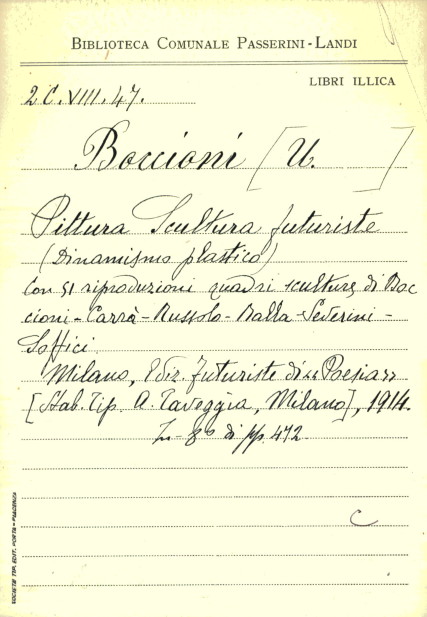 BIBLIOTECA COMUNALE PASSERINI-LANDI
LIBRI ILLICA
2 C. VIII. 47.
Boccioni [U. ]
Pittura Scultura futuriste
(Dinamismo plastico)
Con 51 riproduzioni quadri sculture di Boc
cioni - Carrà - Russolo - Balla - Severini -
Soffici
Milano, Ediz. Futuriste di "Poesia"
[Stab. Tip. A. Taveggia, Milano], 1914.
In-8° di pp. 472
C
SOCIETÀ TIP. EDIT. PORTA - PIACENZA